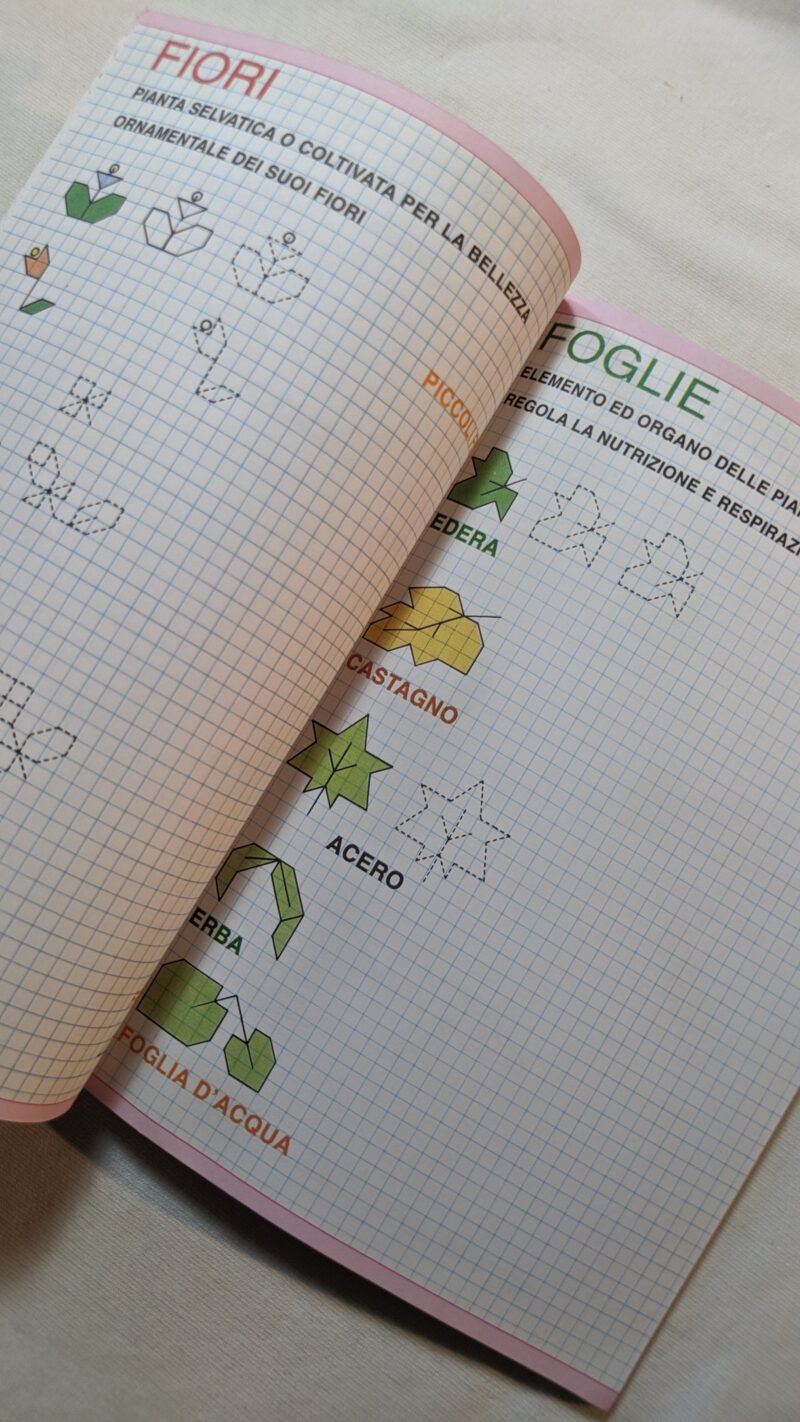 FIORI
PIANTA SELVATICA O COLTIVATA PER LA BELLEZZA
ORNAMENTALE DEI SUOI FIORI
FOGLIE
ELEMENTO ED ORGANO DELLE
REGOLA LA NUTRIZIONE E
EDERA
CASTAGNO
ACERO
ERBA
FOGLIA D'ACQUA